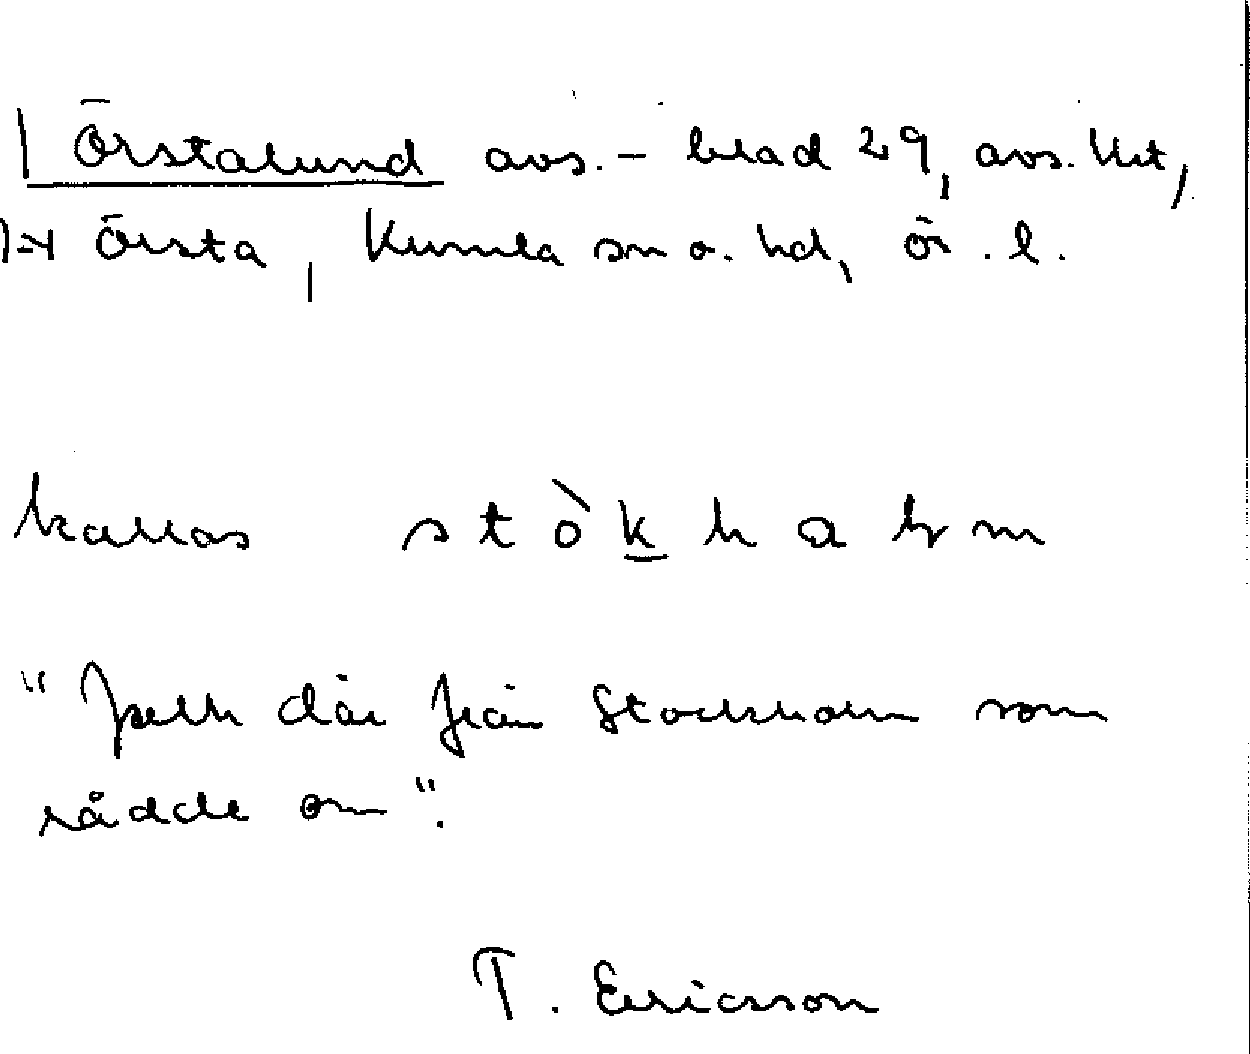 Örstalund avs. – blad 29, avs. litt,
Örsta, Kumla sn o. hd, Ör. l.
kallas stòk h a l m
"folk där från Stockholm som
rådde om".
T. Ericsson